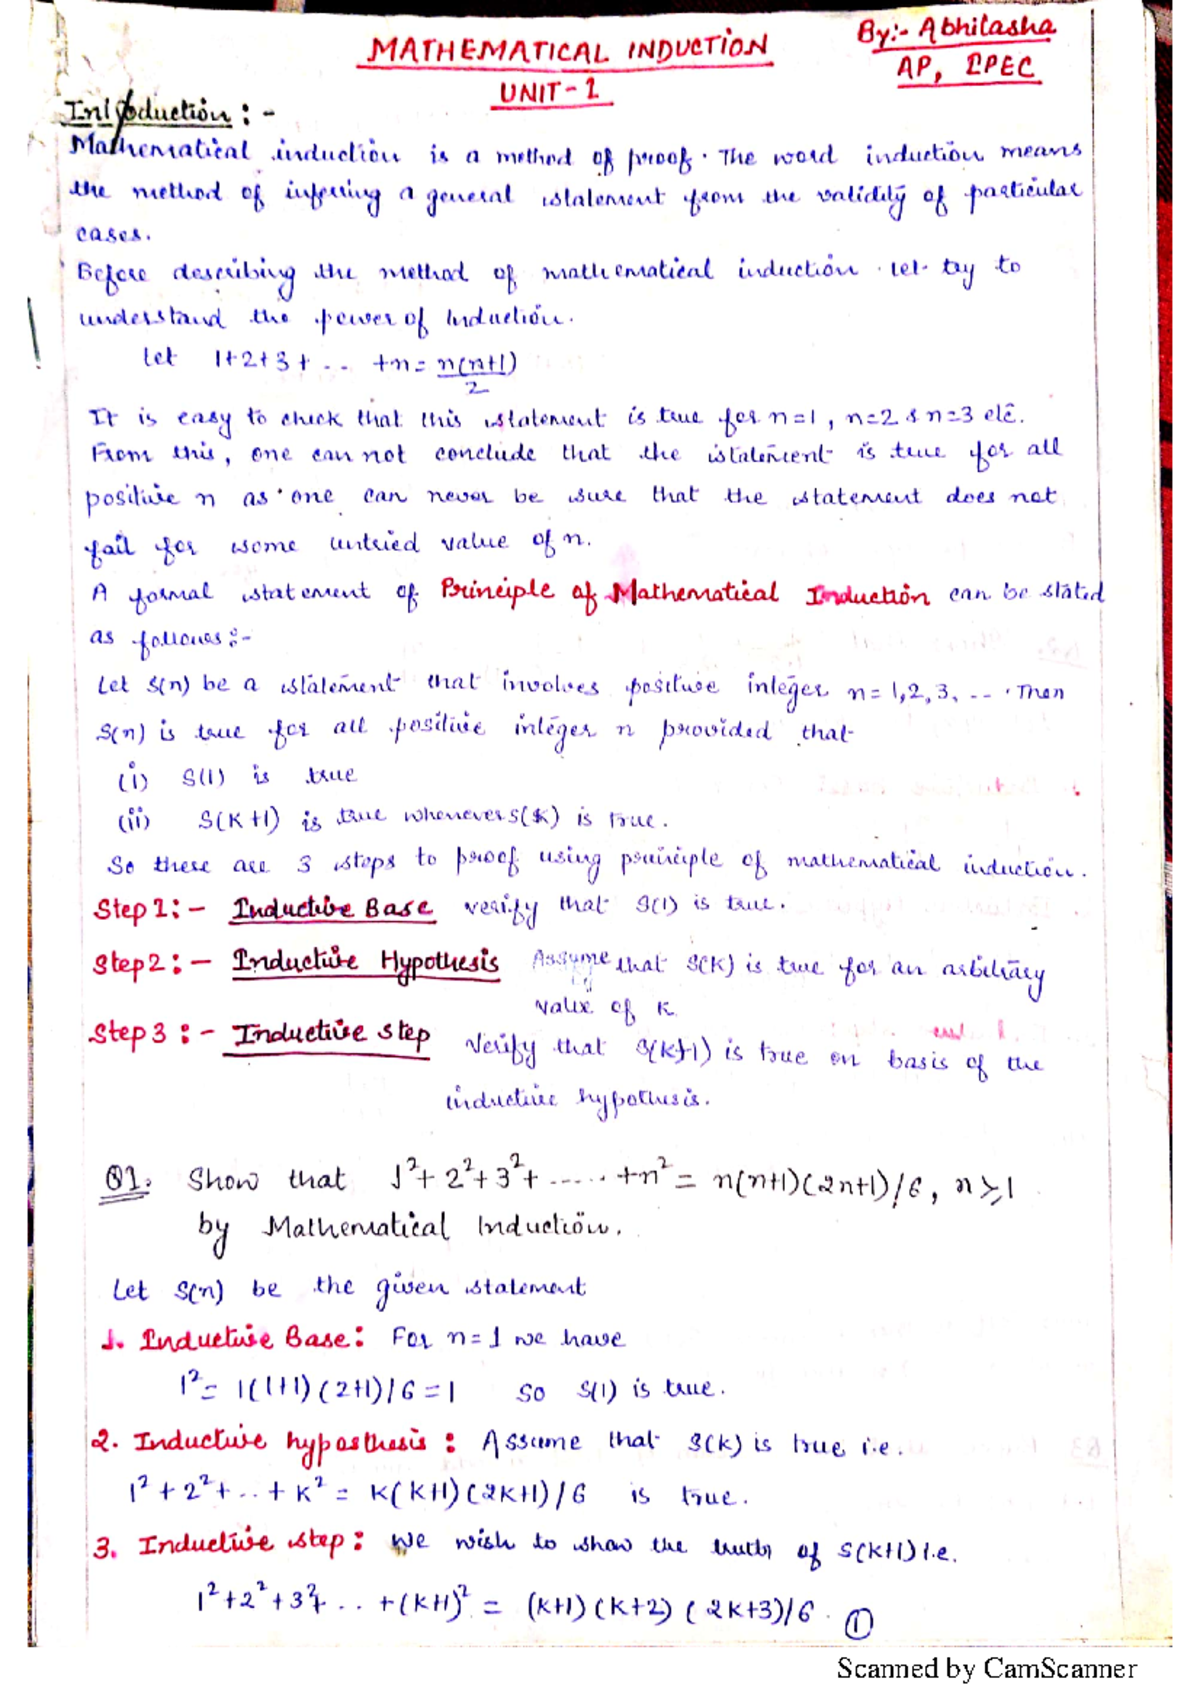 MATHEMATICAL INDUCTION
By:- Abhilasha
UNIT-1
AP, IPEC
Introduction :-
Mathematical induction is a method of proof. The word induction means
the method of inferring a general statement from the validity of particular
cases.
Before describing the method of mathematical induction let try to
understand the power of Induction.
Let 1+2+3+ .. +n = n(n+1)/2
It is easy to check that this statement is true for n=1, n=2 & n=3 etc.
From this, one can not conclude that the statement is true for all
positive n as one can never be sure that the statement does not
fail for some untried value of n.
A formal statement of Principle of Mathematical Induction can be stated
as follows:-
Let S(n) be a statement that involves positive integer n=1,2,3, -- . Then
S(n) is true for all positive integer n provided that
(i) S(1) is true
(ii) S(K+1) is true whenever S(K) is true.
So there are 3 steps to proof using principle of mathematical induction.
Step 1:- Inductive Base verify that S(1) is true.
Step 2:- Inductive Hypothesis Assume that S(K) is true for an arbitrary
value of K
Step 3:- Inductive step Verify that S(K+1) is true on basis of the
inductive hypothesis.
Q1. Show that 1²+2²+3²+ ..... +n² = n(n+1)(2n+1)/6, n≥1
by Mathematical Induction.
Let S(n) be the given statement
1. Inductive Base: For n=1 we have
1² = 1(1+1)(2+1)/6 = 1 So S(1) is true.
2. Inductive hyposthesis: Assume that S(K) is true i.e.
1² + 2² + .. + K² = K(K+1)(2K+1)/6 is true.
3. Inductive step: We wish to show the truth of S(K+1) i.e.
1²+2²+3²+ .. +(K+1)² = (K+1)(K+2)(2K+3)/6. ①
Scanned by CamScanner